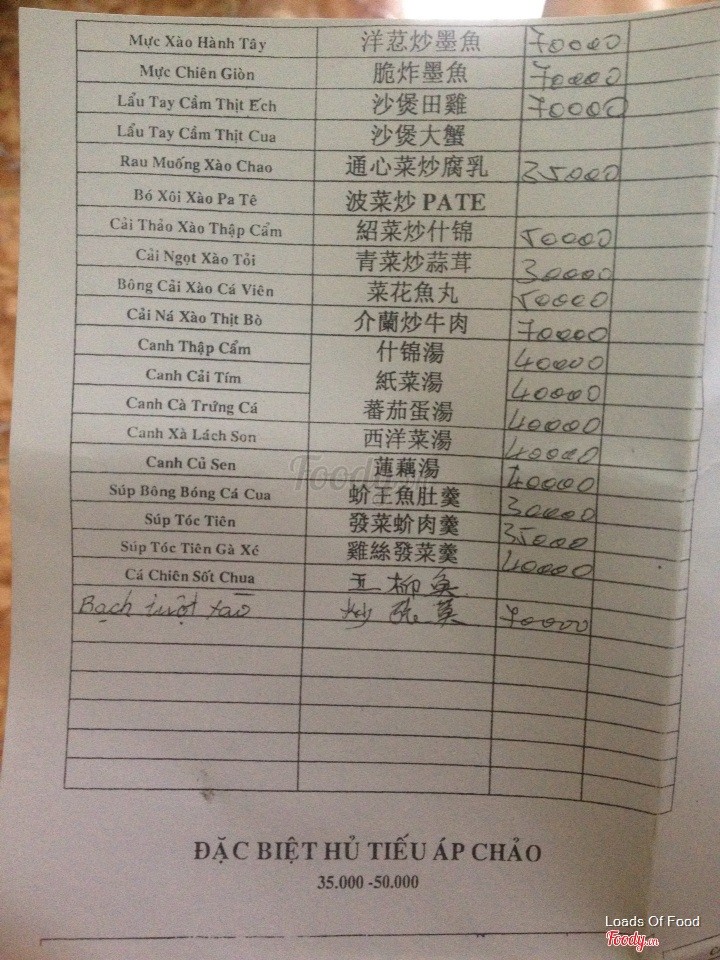 Mực Xào Hành Tây 洋葱炒墨魚 70000
Mực Chiên Giòn 脆炸墨魚 70000
Lẩu Tay Cầm Thịt Ếch 沙煲田雞 70000
Lẩu Tay Cầm Thịt Cua 沙煲大蟹
Rau Muống Xào Chao 通心菜炒腐乳 35000
Bó Xôi Xào Pa Tê 波菜炒 PATE
Cải Thảo Xào Thập Cẩm 紹菜炒什锦 50000
Cải Ngọt Xào Tỏi 青菜炒蒜茸 30000
Bông Cải Xào Cá Viên 菜花魚丸 50000
Cải Ná Xào Thịt Bò 介蘭炒牛肉 70000
Canh Thập Cẩm 什锦湯 40000
Canh Cải Tím 紙菜湯 40000
Canh Cà Trứng Cá 蕃茄蛋湯 40000
Canh Xà Lách Son 西洋菜湯 40000
Canh Củ Sen 蓮藕湯 40000
Súp Bông Bóng Cá Cua 蚧王魚肚羹 30000
Súp Tóc Tiên 發菜蚧肉羹 35000
Súp Tóc Tiên Gà Xé 雞絲發菜羹 40000
Cá Chiên Sốt Chua 五柳魚
Bạch tuột xào 炒 70000
ĐẶC BIỆT HỦ TIẾU ÁP CHẢO
35.000 -50.000
Foody.vn
Loads Of Food
Foody.vn